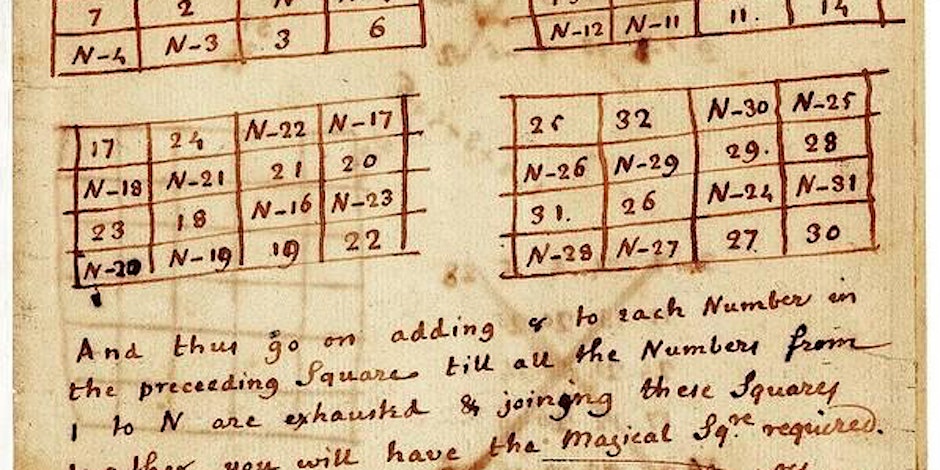 7 2
N-4 N-3 3 6
N-12 N-11 11. 14
17 24 N-22 N-17
N-18 N-21 21 20
23 18 N-16 N-23
N-20 N-19 19 22
25 32 N-30 N-25
N-26 N-29 29. 28
31. 26 N-24 N-31
N-28 N-27 27 30
And thus go on adding 8 to each Number in
the preceeding Square till all the Numbers from
1 to N are exhausted & joining these Squares
you will have the Magical Sqre required.